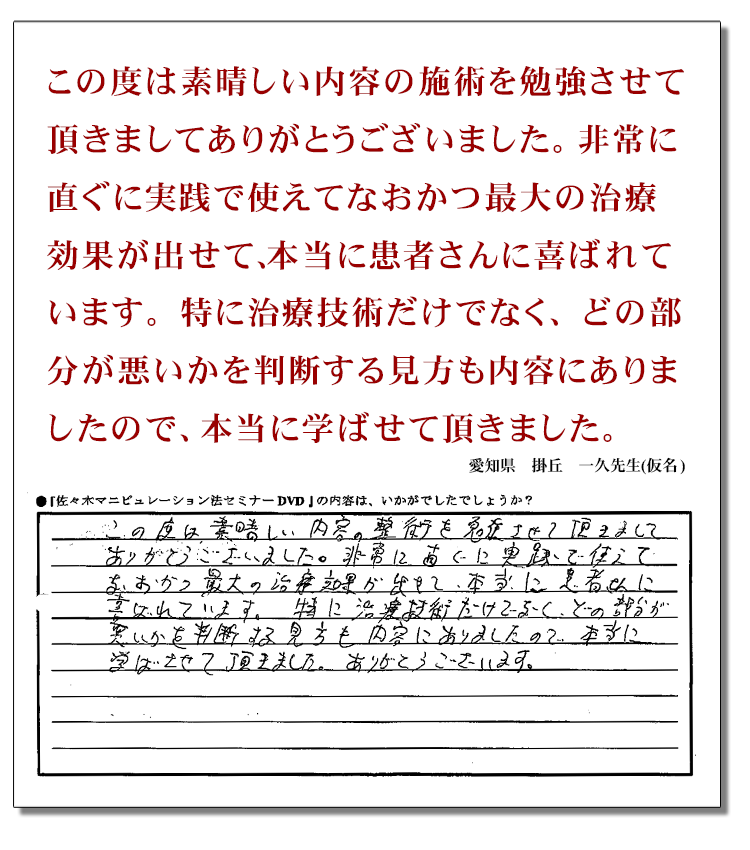 この度は素晴しい内容の施術を勉強させて
頂きましてありがとうございました。非常に
直ぐに実践で使えてなおかつ最大の治療
効果が出せて、本当に患者さんに喜ばれて
います。特に治療技術だけでなく、どの部
分が悪いかを判断する見方も内容にありま
したので、本当に学ばせて頂きました。
愛知県 掛丘 一久先生(仮名)
●『佐々木マニピュレーション法セミナーDVD』の内容は、いかがでしたでしょうか？
この度は素晴しい内容の整術を勉強させて頂きまして
ありがとうございました。非常に直ぐに実践で使えて
なおかつ最大の治療効果が出せて、本当に患者さんに
喜ばれています。特に治療技術だけでなく、どの部分が
悪いかを判断する見方も内容にありましたので、本当に
学ばさせて頂きました。ありがとうございます。